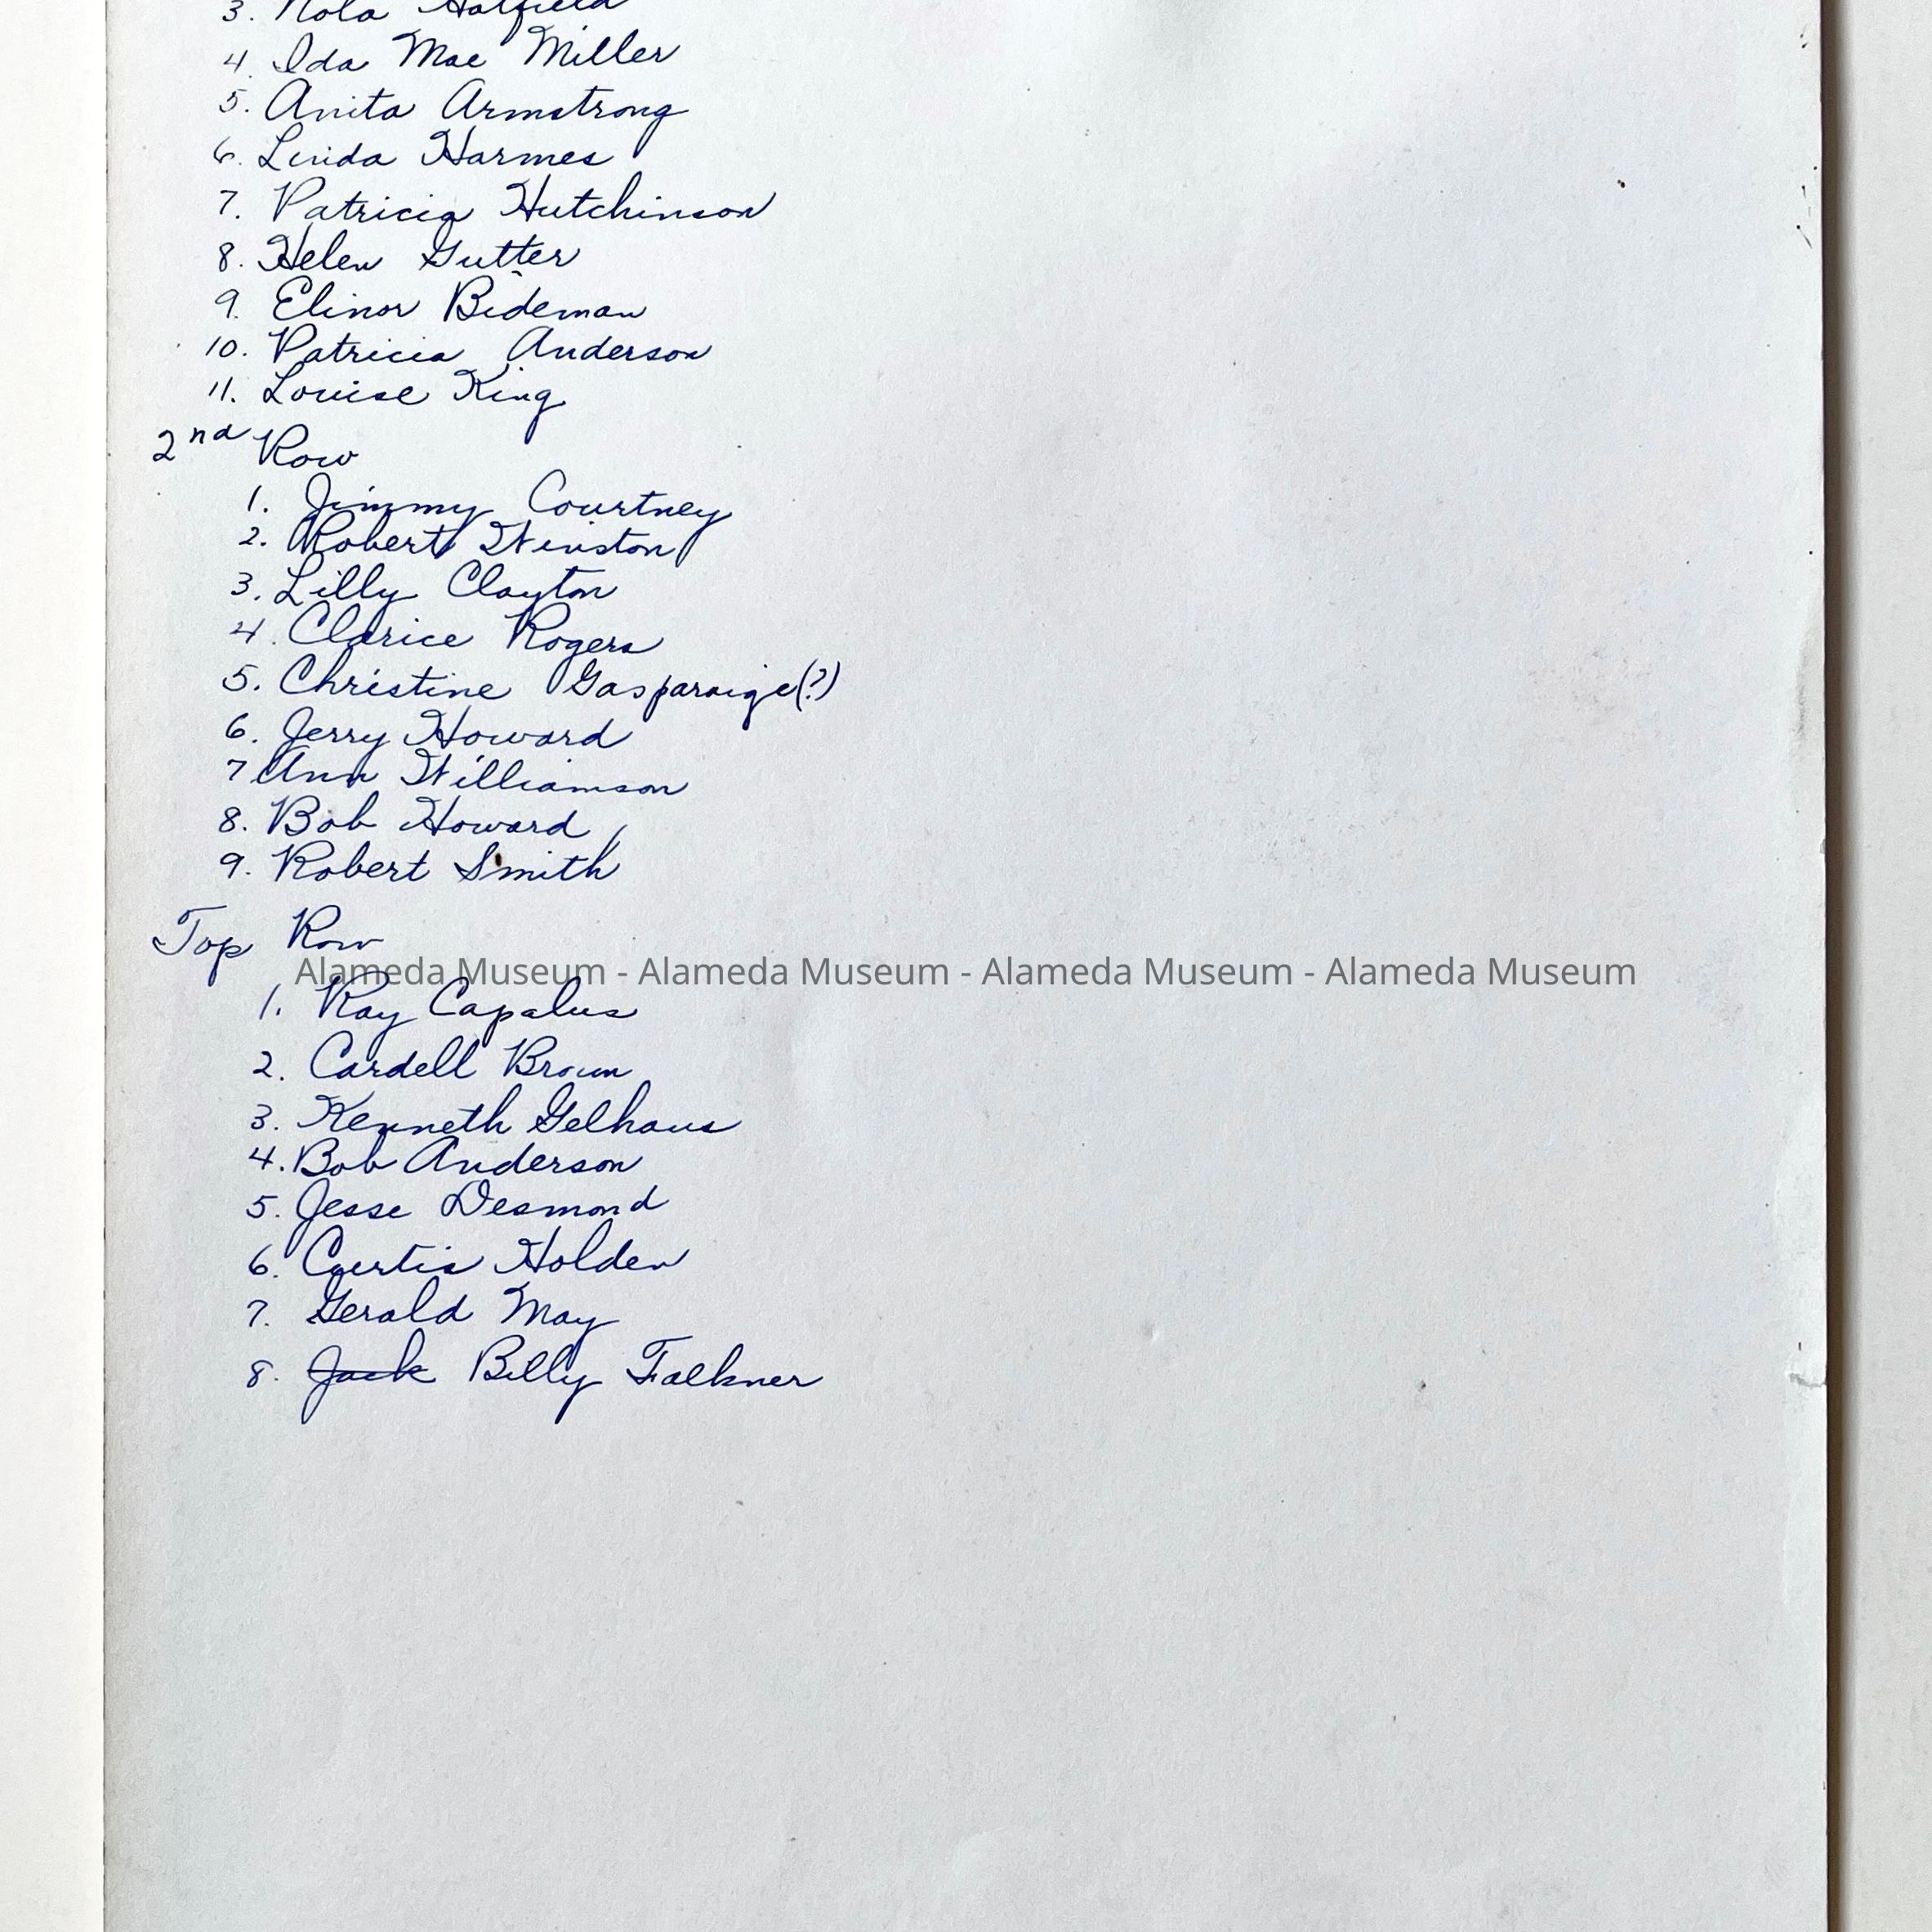 3. Nola Hatfield
4. Ida Mae Miller
5. Anita Armstrong
6. Linda Harmes
7. Patricia Hutchinson
8. Helen Gutter
9. Elinor Bideman
10. Patricia Anderson
11. Louise King
2nd Row
1. Jimmy Courtney
2. Robert Winston
3. Lilly Clayton
4. Clarice Rogers
5. Christine Gasparaige(?)
6. Jerry Howard
7 Ann Williamson
8. Bob Howard
9. Robert Smith
Top Row
Alameda Museum - Alameda Museum - Alameda Museum - Alameda Museum
1. Ray Capalus
2. Cardell Brown
3. Kenneth Gelhaus
4. Bob Anderson
5. Jesse Desmond
6. Curtis Holden
7. Gerald May
8. Jack Billy Falkner